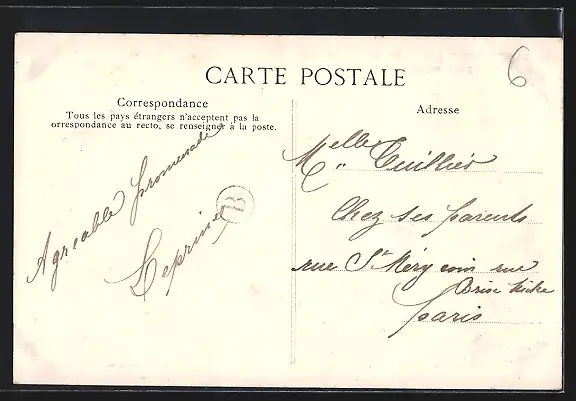 CARTE POSTALE
6
Correspondance
Tous les pays étrangers n'acceptent pas la
orrespondance au recto, se renseigner à la poste.
Adresse
Agréable promenade
Leprince
B
Melle Cuillier
Chez ses parents
rue St Méry coin rue
Brise Miche
Paris